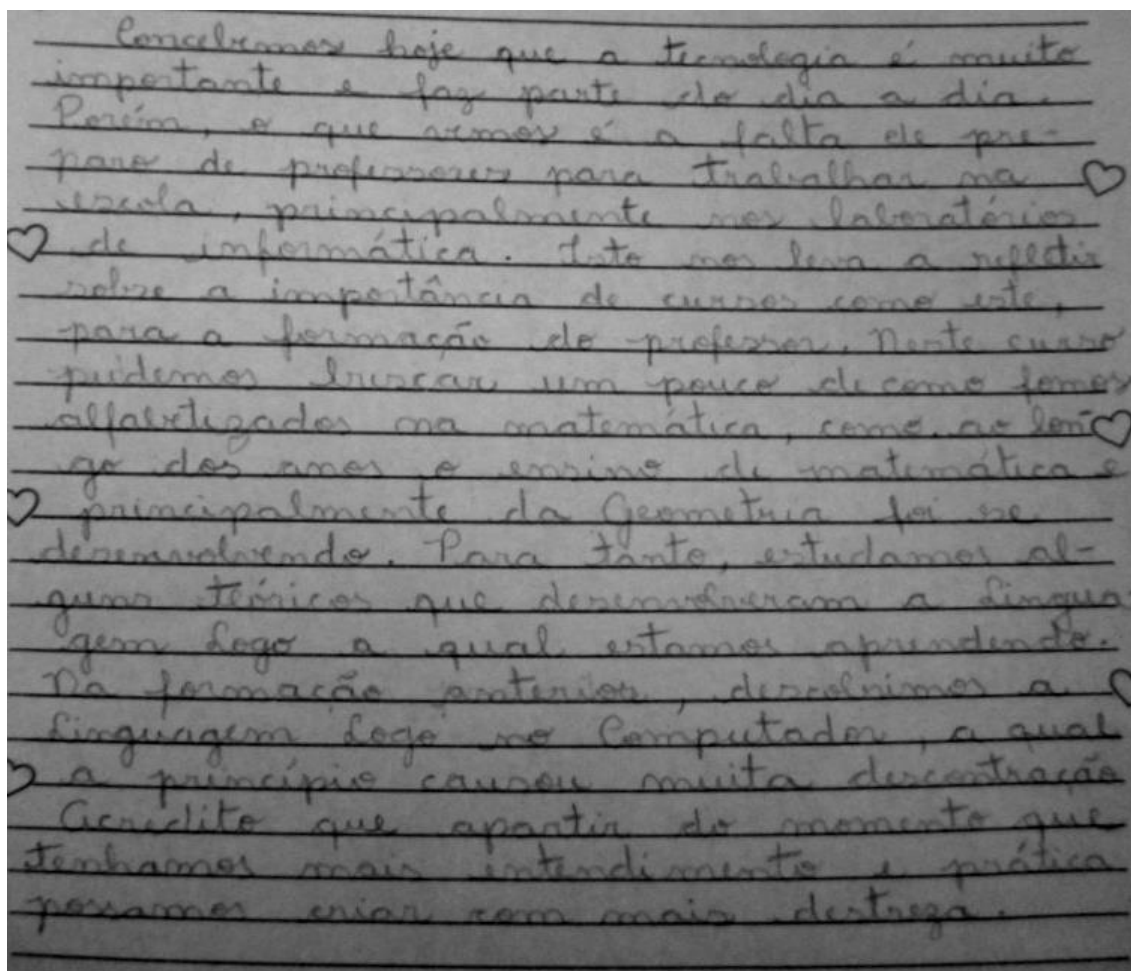 Concebemos hoje que a tecnologia é muito
importante e faz parte do dia a dia.
Porém, o que vemos é a falta de pre-
paro de professores para trabalhar na
escola, principalmente nos laboratórios
de informática. Isto nos leva a refletir
sobre a importância de cursos como este,
para a formação do professor. Neste curso
pudemos buscar um pouco de como fomos
alfabetizados na matemática, como ao lon-
go dos anos o ensino de matemática e
principalmente da Geometria foi se
desenvolvendo. Para tanto, estudamos al-
guns teóricos que desenvolveram a Lingua-
gem Logo a qual estamos aprendendo.
Na formação anterior, descobrimos a
Linguagem Logo no Computador, a qual
a princípio causou muita descontração
Acredito que apartir do momento que
tenhamos mais intendimento e prática
possamos criar com mais destreza.